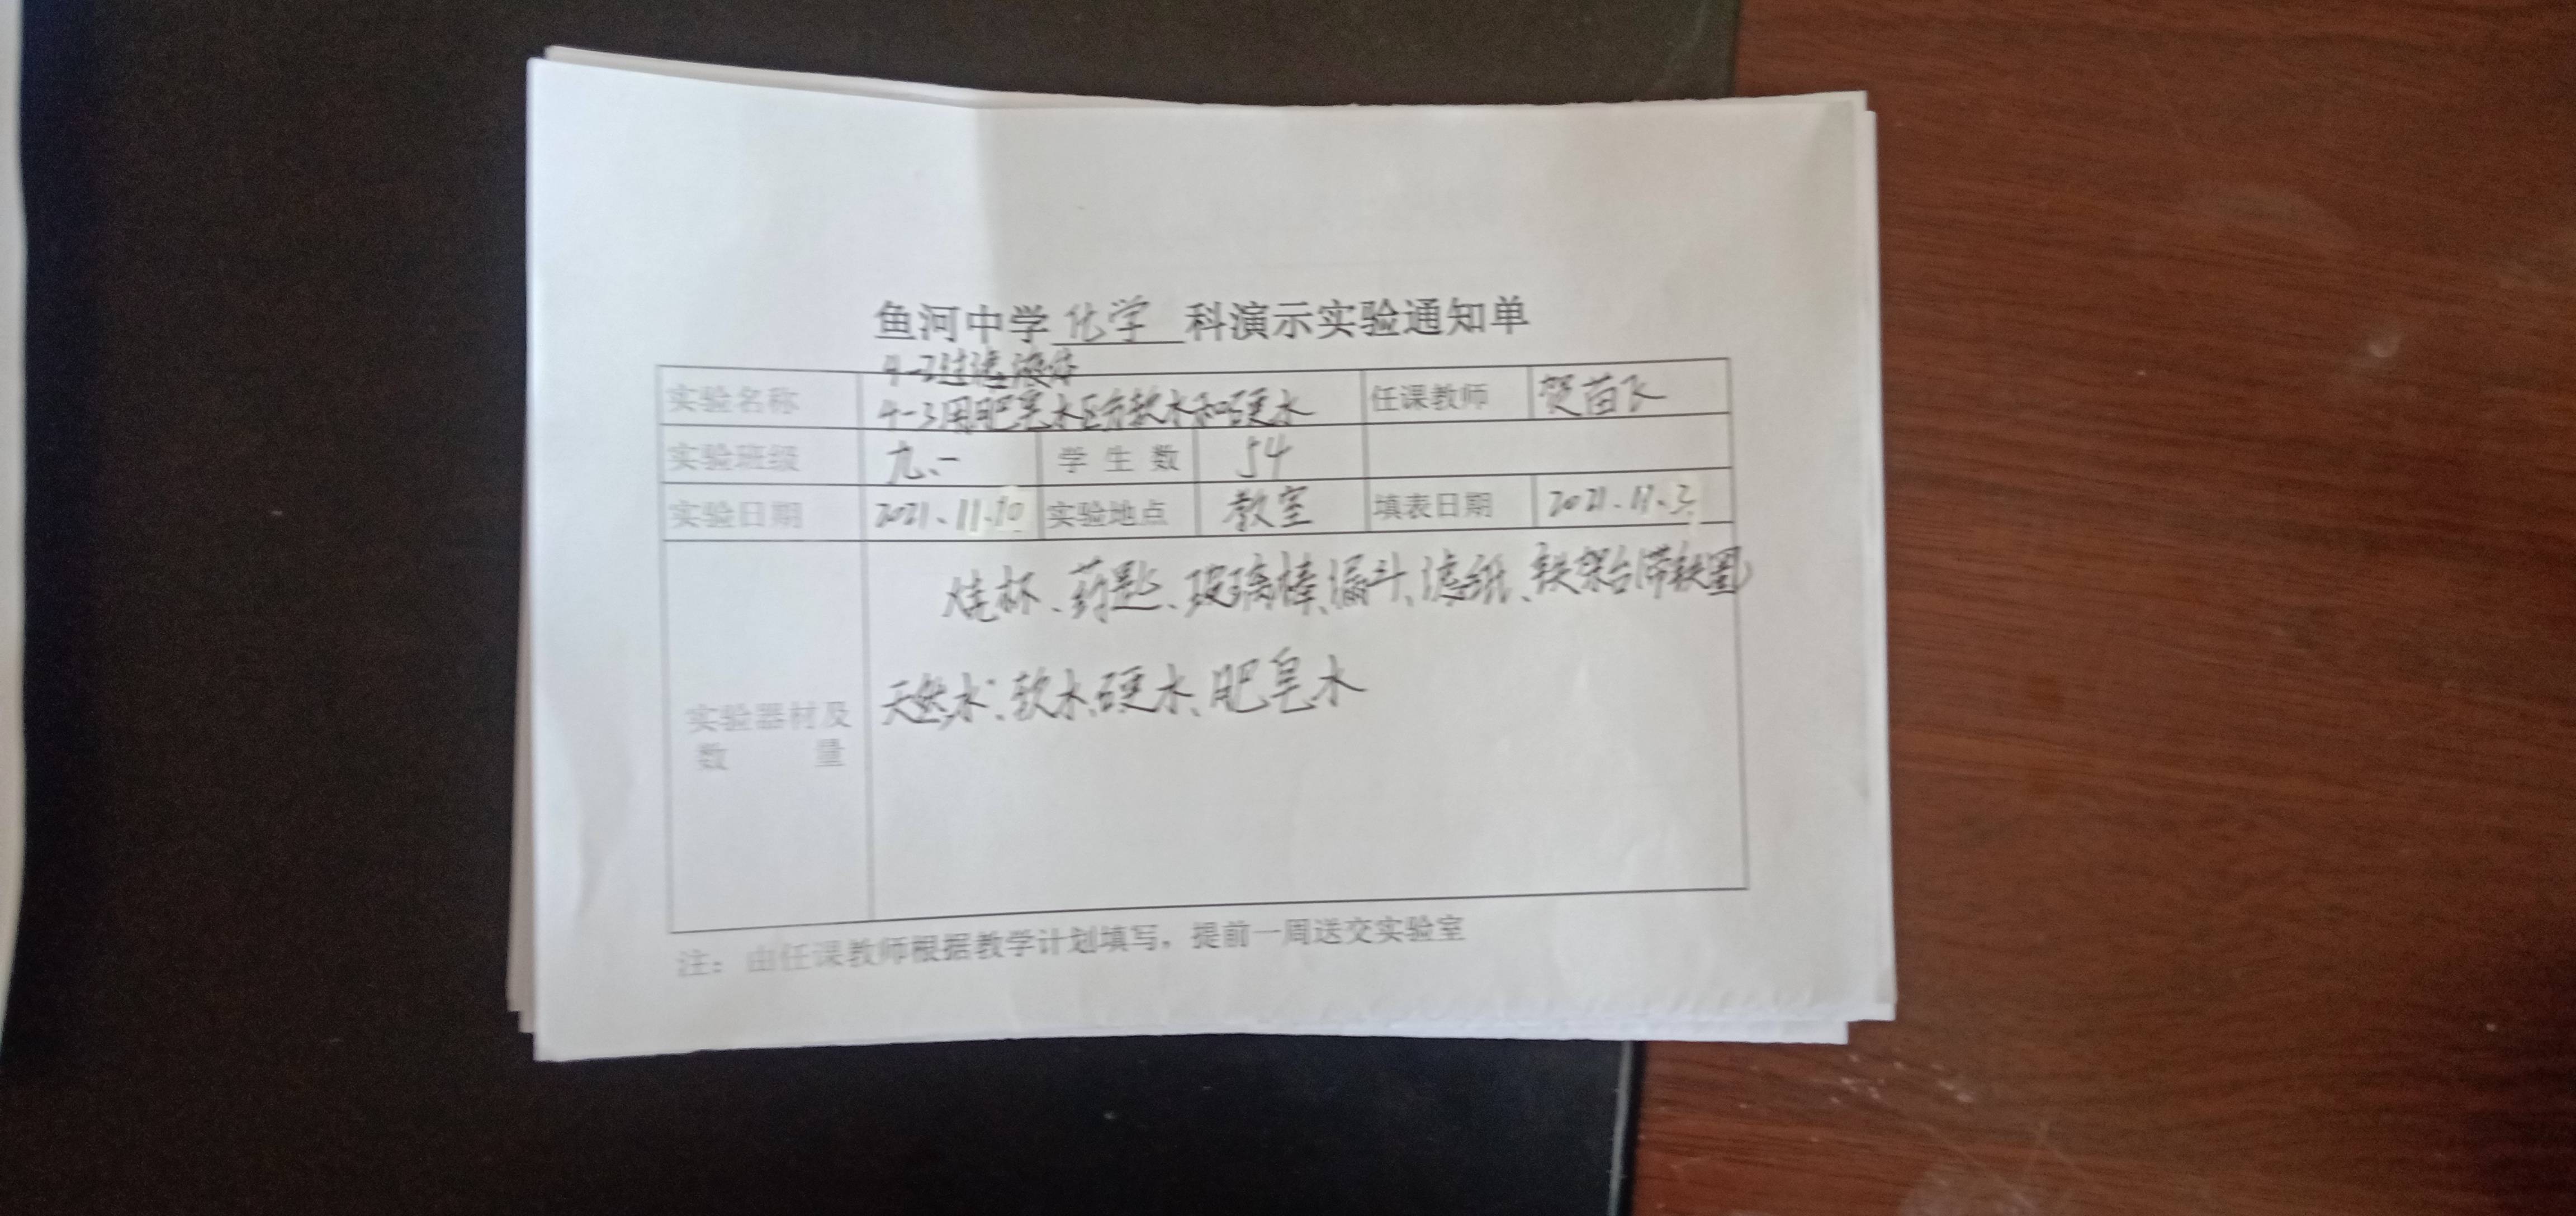 鱼河中学 化学 科演示实验通知单
4-2过滤液体
实验名称 4-3用肥皂水区分软水和硬水 任课教师 贺苗飞
实验班级 九、一 学生数 54
实验日期 2021.11.10 实验地点 教室 填表日期 2021.11.3
烧杯、药匙、玻璃棒、漏斗、滤纸、铁架台带铁圈
天然水、软水、硬水、肥皂水
实验器材及
数 量
注：由任课教师根据教学计划填写，提前一周送交实验室